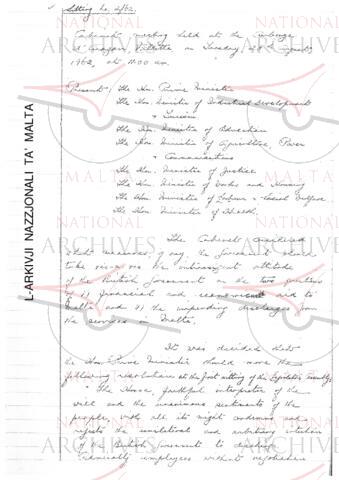 Sitting No. 4/62.
Cabinet meeting held at the Auberge
d'Aragon, Valletta on Tuesday, 28th August,
1962, at 11.00 am.
Present: The Hon. Prime Minister
The Hon. Minister of Industrial Development
& Tourism
The Hon. Minister of Education
The Hon. Minister of Agriculture, Power
& Communications
The Hon. Minister of Justice
The Hon. Minister of Works and Housing
The Hon. Minister of Labour & Social Welfare
The Hon. Minister of Health.
The Cabinet considered
what measures, if any, the Government should
take vis-a-vis the intransigent attitude
of the British Government on the two matters
of (1) financial and economic aid to
Malta and (2) the impending discharges from
the services in Malta.
It was decided that
the Hon. Prime Minister should move the
following resolution at the first sitting of the Legislative Assembly:
"The House, faithful interpreter of the
will and the unanimous sentiments of the
people, with all its might condemns and
rejects the unilateral and arbitrary intention
of the British Government to discharge
employees without
L-ARKIVJI NAZZJONALI TA' MALTA
NATIONAL
ARCHIVES
MALTA